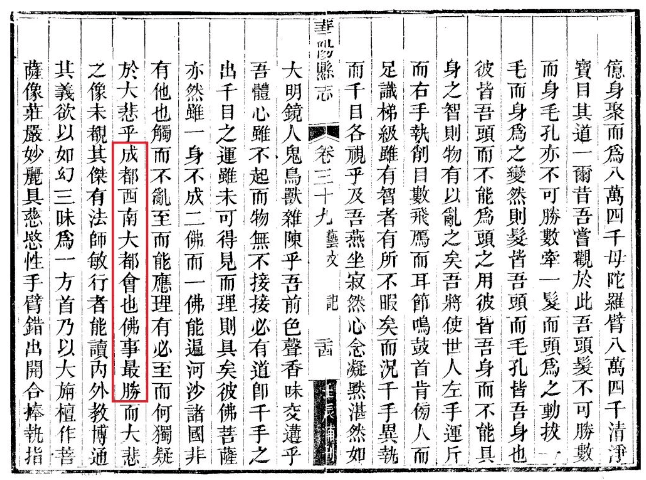 億身聚而爲八萬四千母陀羅臂八萬四千淸淨
寶目其道一爾昔吾嘗觀於此吾頭髮不可勝數
而身毛孔亦不可勝數牽一髮而頭爲之動拔一
毛而身爲之變然則髮皆吾頭而毛孔皆吾身也
彼皆吾頭而不能爲頭之用彼皆吾身而不能具
身之智則物有以亂之矣吾將使世人左手運斤
而右手執削目數飛鴈而耳節鳴鼓首肯傍人而
足識梯級雖有智者有所不暇矣而況千手異執
而千目各視乎及吾燕坐寂然心念凝默湛然如
華陽縣志 卷三十九 藝文 記
大明鏡人鬼鳥獸雜陳乎吾前色聲香味交遘乎
吾體心雖不起而物無不接接必有道卽千手之
出千目之運雖未可得見而理則具矣彼佛菩薩
亦然雖一身不成二佛而一佛能遍河沙諸國非
有他也觸而不亂至而能應理有必至而何獨疑
於大悲乎成都西南大都會也佛事最勝而大悲
之像未覩其傑有法師敏行者能讀內外教博通
其義欲以如幻三昧爲一方首乃以大旃檀作菩
薩像莊嚴妙麗具慈愍性手臂錯出開合捧執指